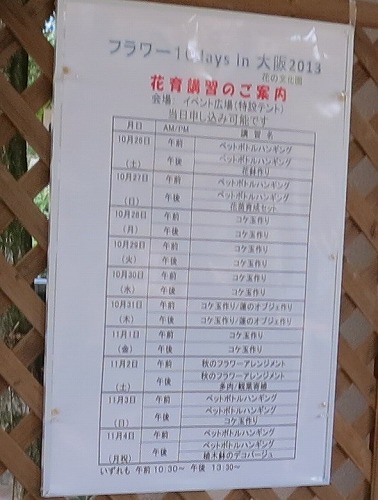 フラワー10days in 大阪2013
花の文化園
花育講習のご案内
会場: イベント広場(特設テント)
当日申し込み可能です
月日 AM/PM 講習名
10月26日 午前 ペットボトルハンギング
(土) 午後 ペットボトルハンギング
花鉢作り
10月27日 午前 ペットボトルハンギング
(日) 午後 ペットボトルハンギング
花苗育成セット
10月28日 午前 コケ玉作り
(月) 午後 コケ玉作り
10月29日 午前 コケ玉作り
(火) 午後 コケ玉作り
10月30日 午前 コケ玉作り
(水) 午後 コケ玉作り
10月31日 午前 コケ玉作り/蓮のオブジェ作り
(木) 午後 コケ玉作り/蓮のオブジェ作り
11月1日 午前 コケ玉作り
(金) 午後 コケ玉作り
11月2日 午前 秋のフラワーアレンジメント
(土) 午後 秋のフラワーアレンジメント
多肉/観葉寄植
11月3日 午前 ペットボトルハンギング
(日) 午後 ペットボトルハンギング
コケ玉作り
11月4日 午前 ペットボトルハンギング
(月祝) 午後 ペットボトルハンギング
植木鉢のデコパージュ
いずれも 午前 10:30~ 午後 13:30~